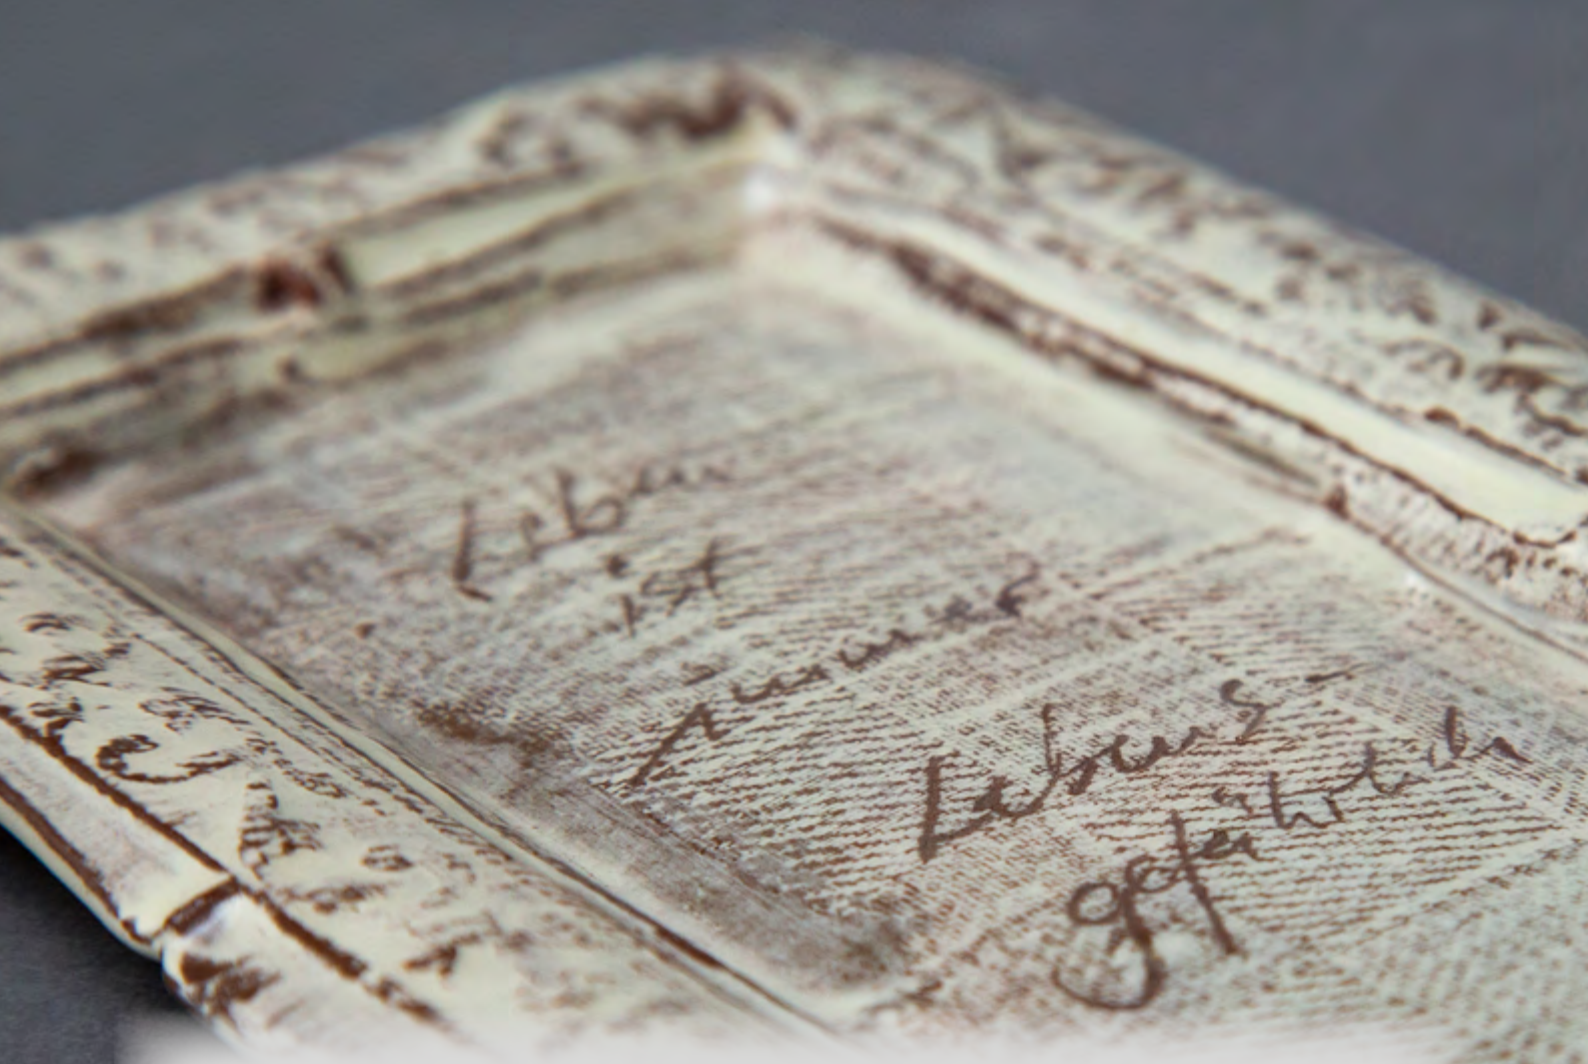 Leben
ist
immer
Lebens-
gefährlich